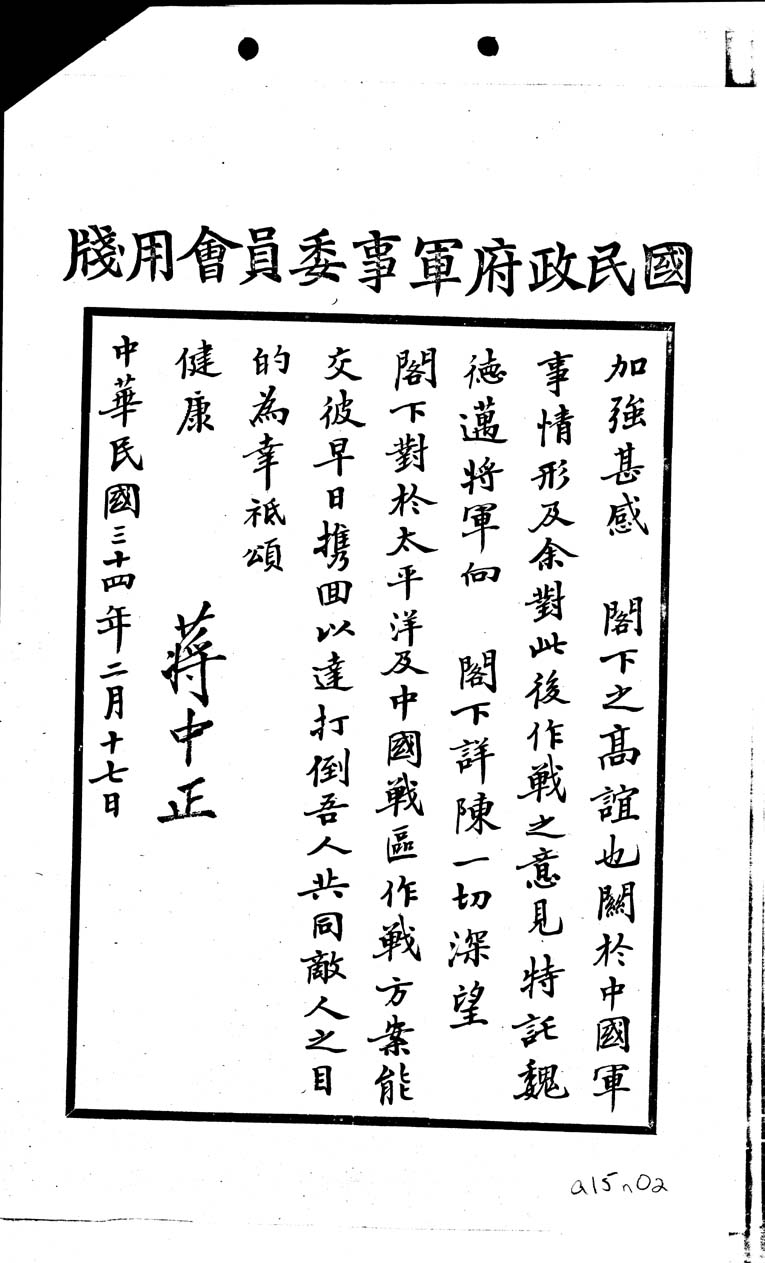 國民政府軍事委員會用牋
加強甚感 閣下之高誼也關於中國軍
事情形及余對此後作戰之意見特託魏
德邁將軍向 閣下詳陳一切深望
閣下對於太平洋及中國戰區作戰方案能
交彼早日携回以達打倒吾人共同敵人之目
的為幸祗頌
健康
蔣中正
中華民國三十四年二月十七日
a15n02